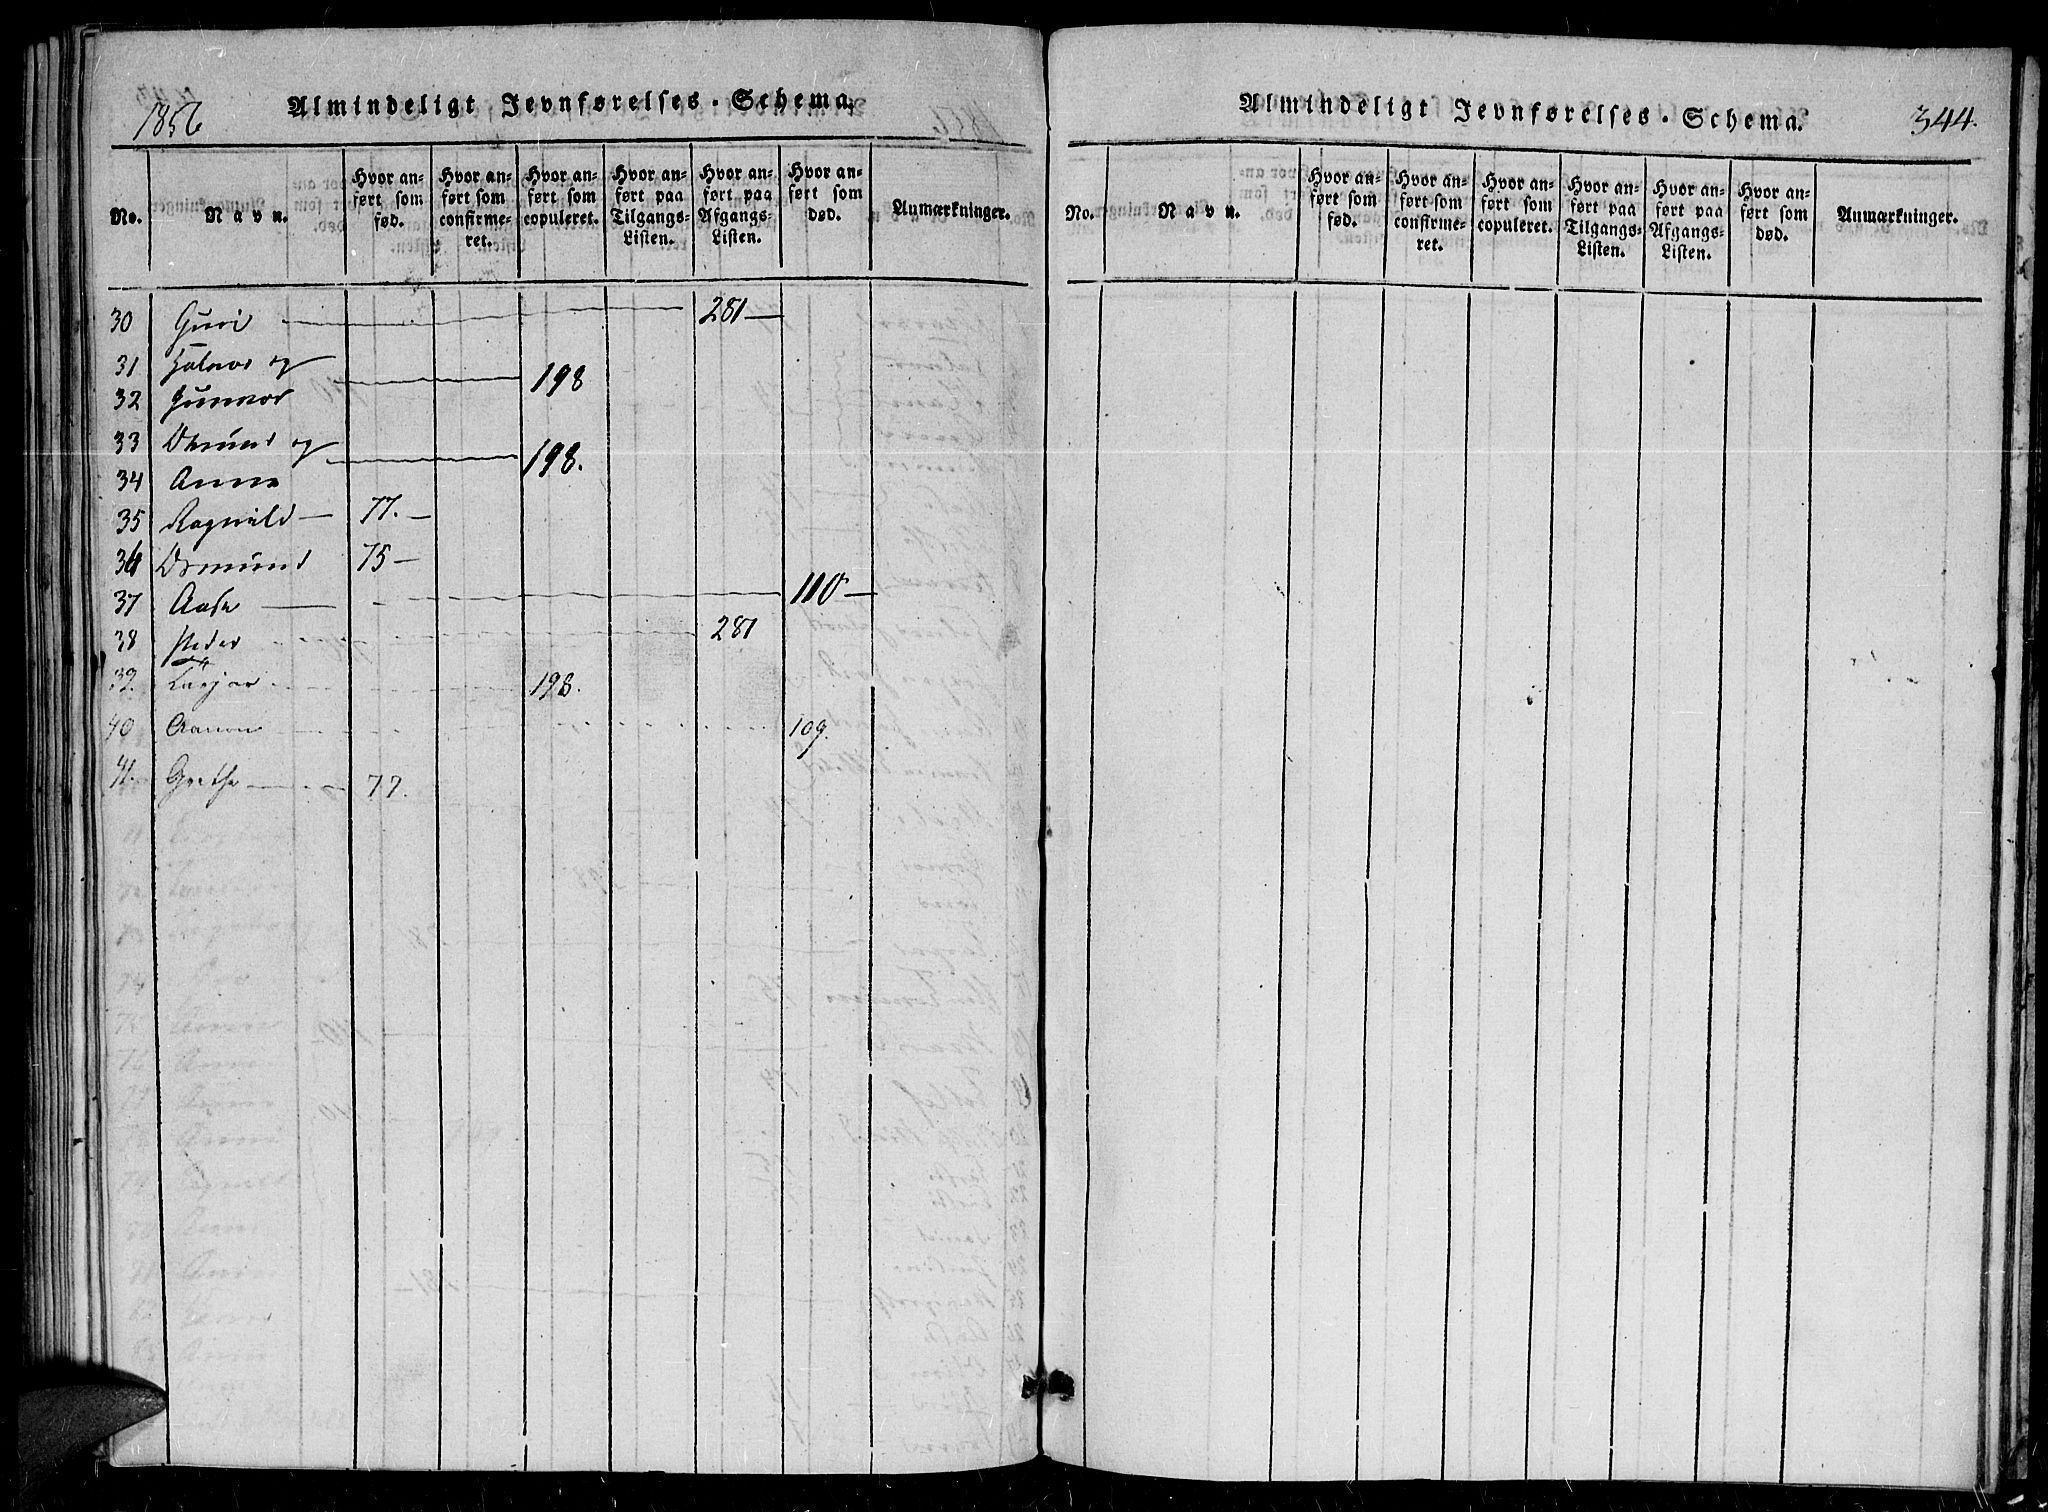 1856 Almindeligt Jevnførelses-Schema.
No. Navn. Hvor anført som fød. Hvor anført som confirmeret. Hvor anført som copuleret. Hvor anført paa Tilgangs-Listen. Hvor anført paa Afgangs-Listen. Hvor anført som død. Anmærkninger.
30 Guri 281
31 Halvor og
198
32 Gunvor
33 og
198.
34 Anna
35 Ragnild 77.
36 Osmund 75
37 Aase 110
38 Peder 281
39. 198.
40 Aanon 109.
41. Grethe 77.
Almindeligt Jevnførelses-Schema. 344.
No. Navn. Hvor anført som fød. Hvor anført som confirmeret. Hvor anført som copuleret. Hvor anført paa Tilgangs-Listen. Hvor anført paa Afgangs-Listen. Hvor anført som død. Anmærkninger.